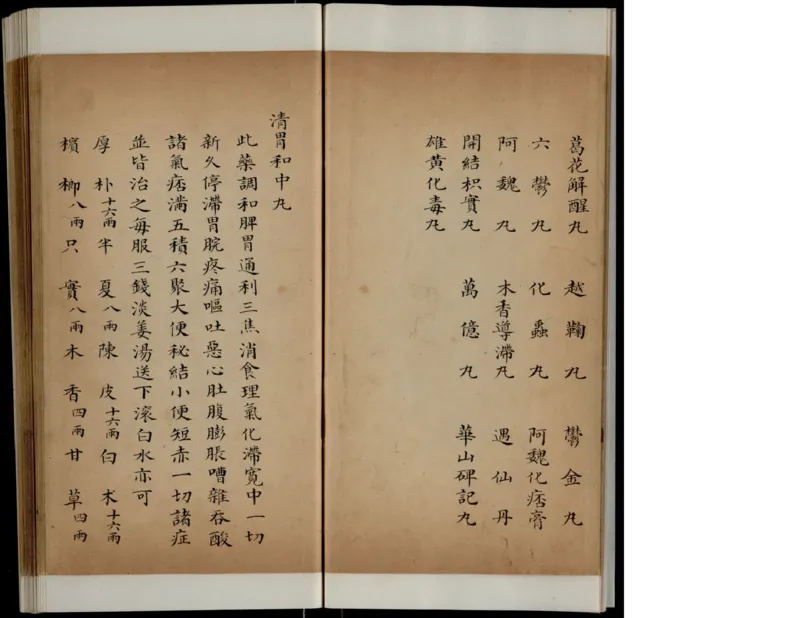 葛花解醒丸 越鞠丸 鬱金丸
六鬱丸 化蟲丸 阿魏化痞膏
阿魏丸 木香導滯丸 遇仙丹
開結枳實丸 萬億丸 華山碑記丸
雄黃化毒丸
清胃和中丸
此藥調和脾胃通利三焦消食理氣化滯寬中一切
新久停滯胃脘疼痛嘔吐惡心肚腹膨脹嘈雜吞酸
諸氣痞滿五積六聚大便秘結小便短赤一切諸症
並皆治之每服三錢淡姜湯送下滾白水亦可
厚朴十六兩半夏八兩陳皮十六兩白朮十六兩
檳榔八兩只實八兩木香四兩甘草四兩